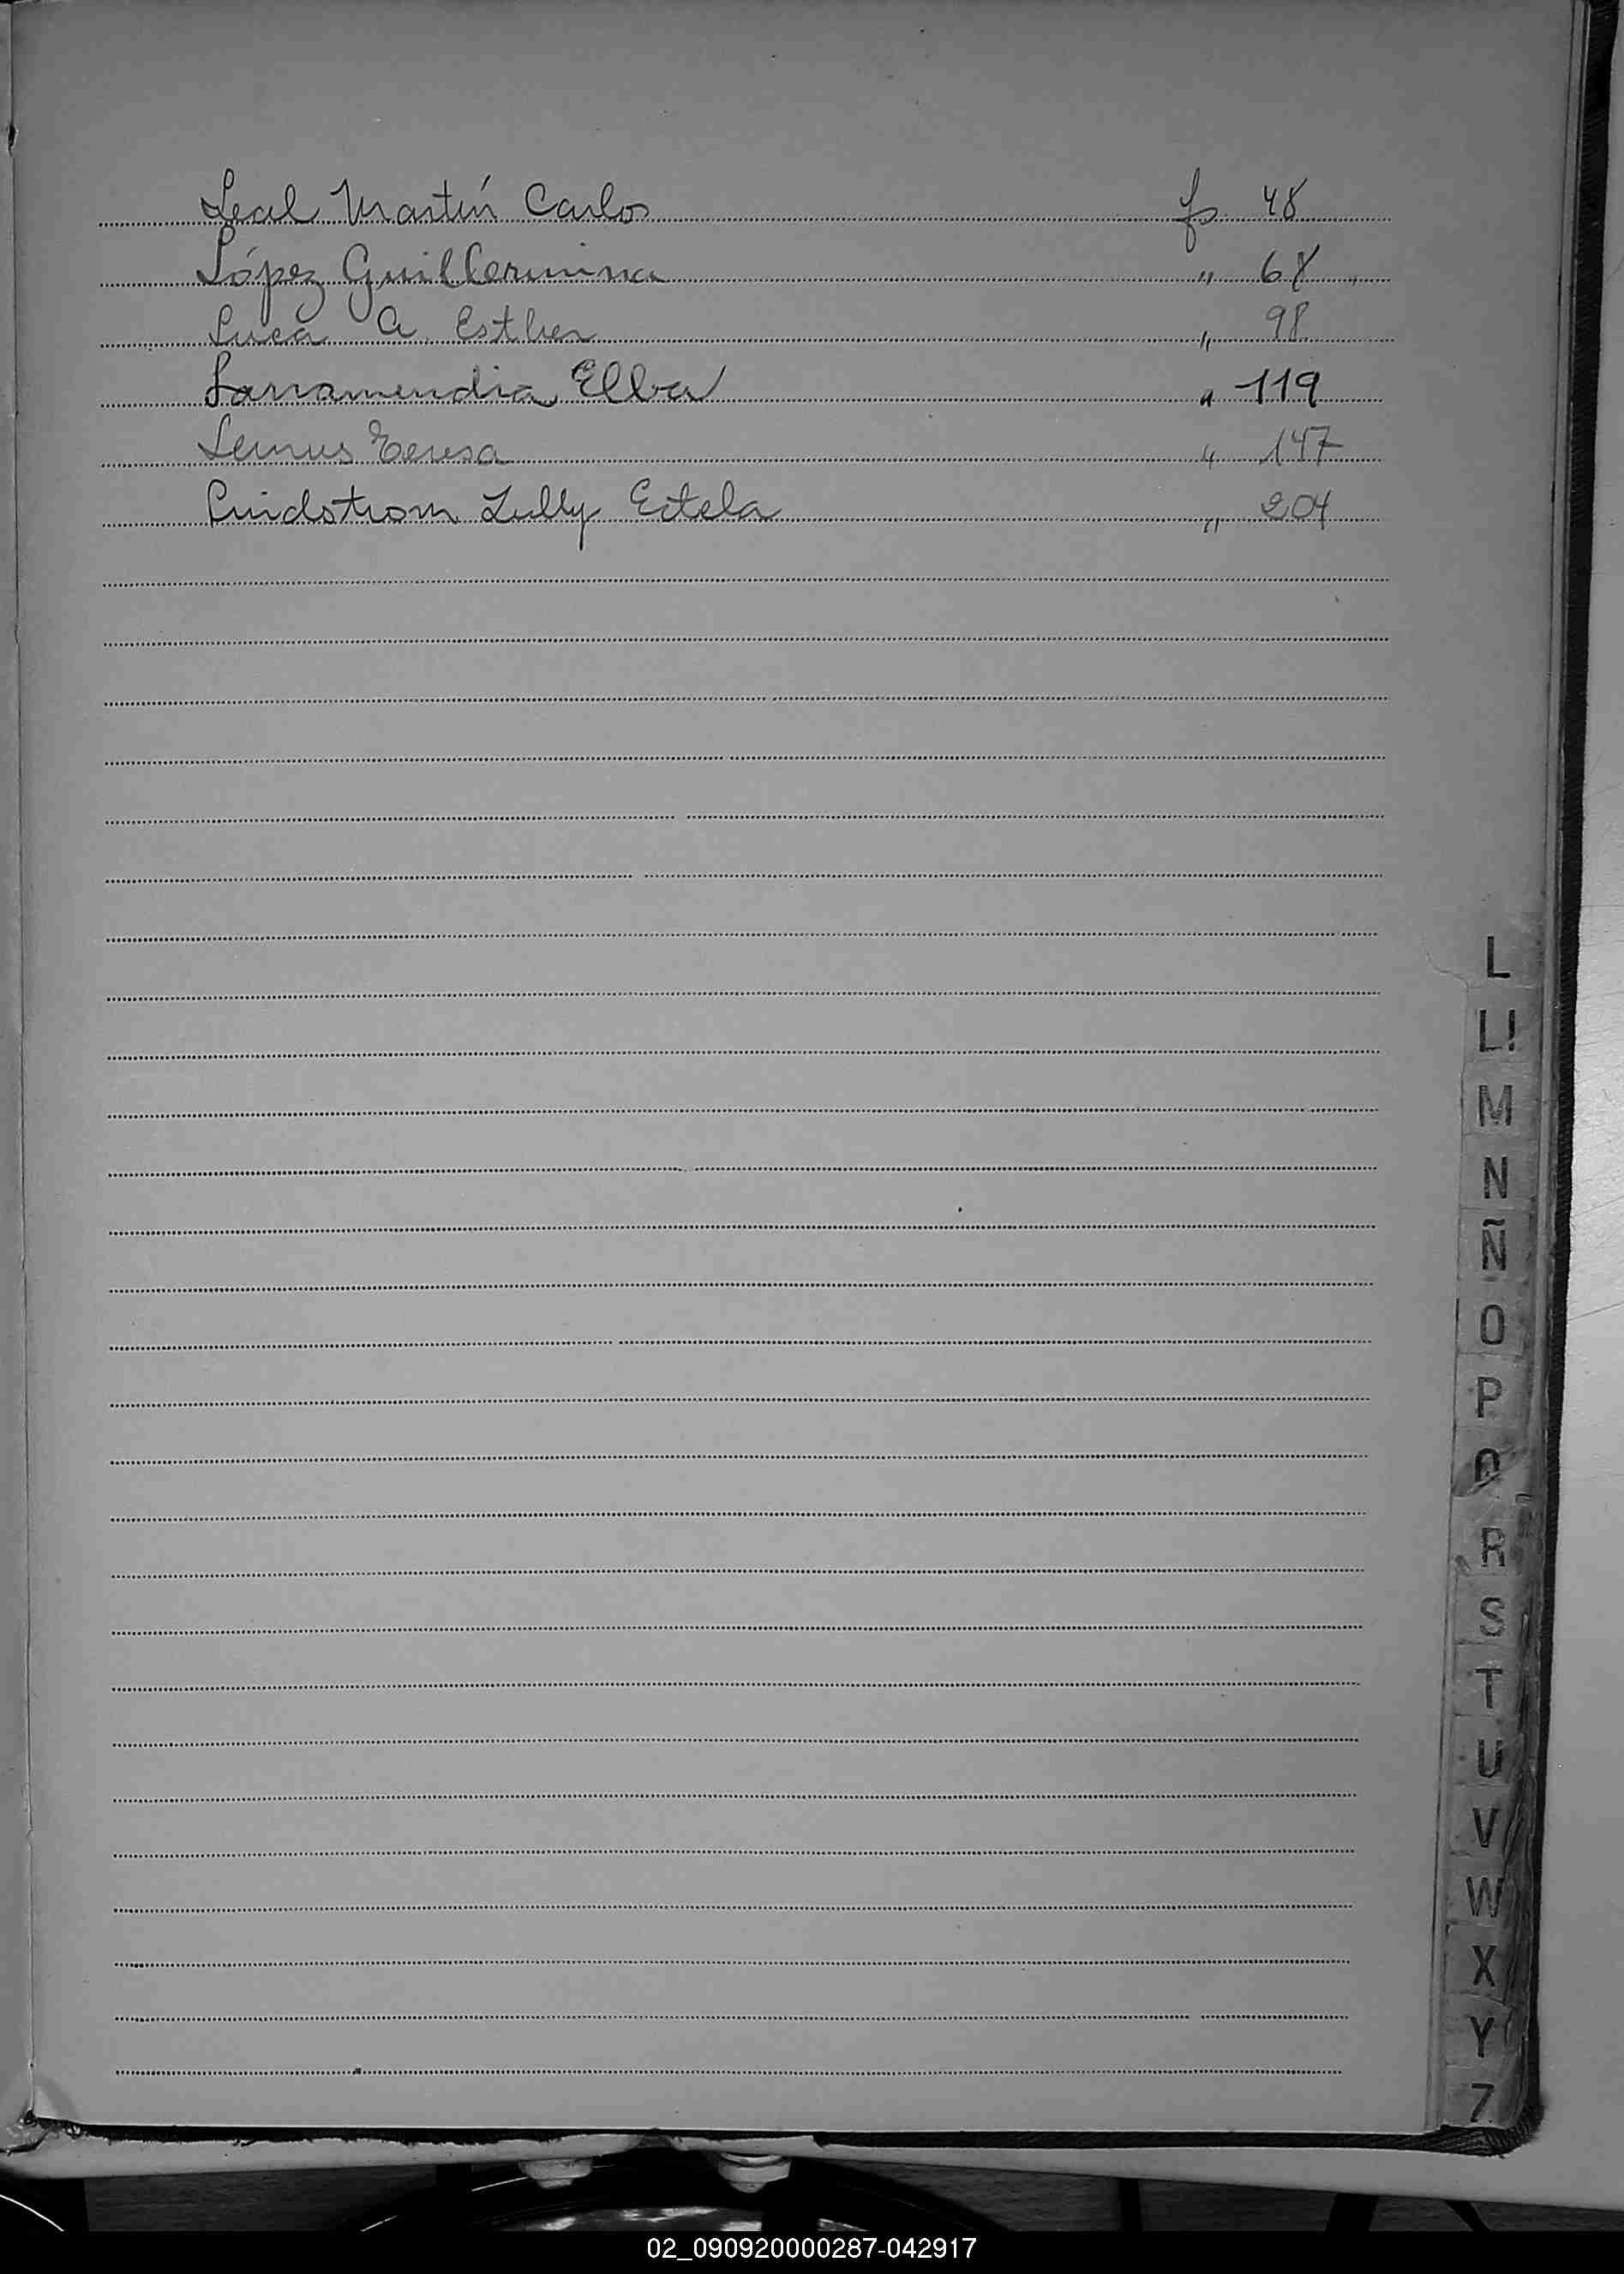 Leal Martín Carlos fs 48
López Guillermina " 68
Luca A. Esther " 98
Larramendia Elba " 119
Lemus Teresa " 147
Lindstrom Lully Estela " 204
L
Ll
M
N
Ñ
O
P
Q
R
S
T
U
V
W
X
Y
Z
02_090920000287-042917